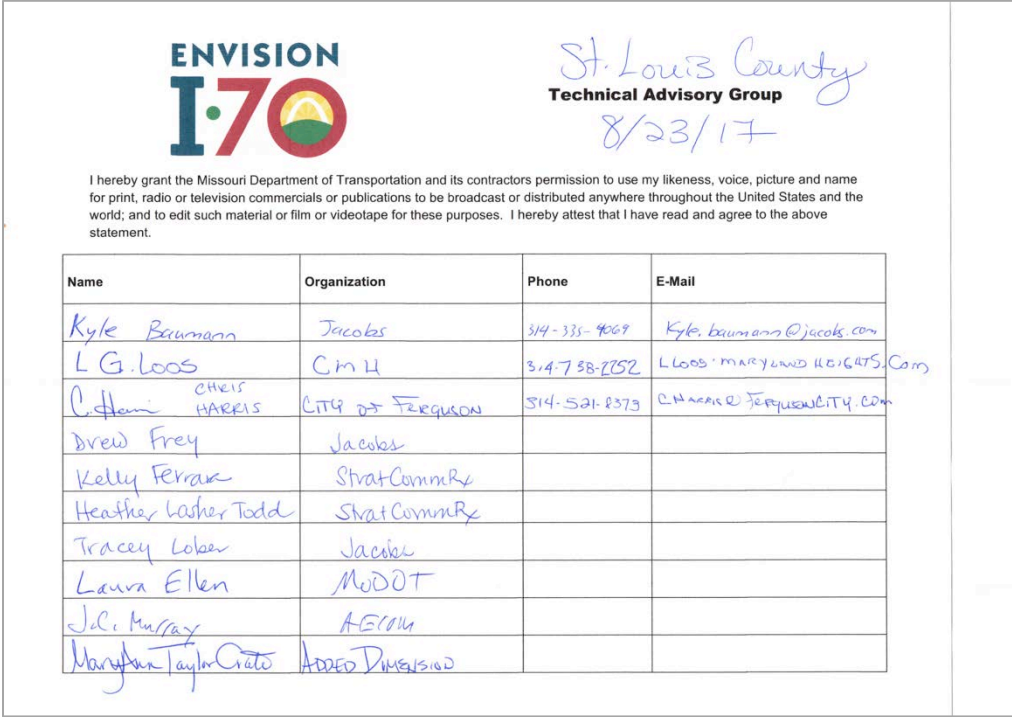 ENVISION
I·70
St. Louis County
Technical Advisory Group
8/23/17
I hereby grant the Missouri Department of Transportation and its contractors permission to use my likeness, voice, picture and name
for print, radio or television commercials or publications to be broadcast or distributed anywhere throughout the United States and the
world; and to edit such material or film or videotape for these purposes.  I hereby attest that I have read and agree to the above
statement.
Name Organization Phone E-Mail
Kyle Baumann Jacobs 314-335-4069 Kyle.baumann@jacobs.com
L G. Loos CMH 314-738-2252 LLOOS·MARYLAND HEIGHTS.Com
C. Harris CHRIS HARRIS CITY OF FERGUSON 314-521-8373 CHARRIS@FERGUSONCITY.COM
Drew Frey Jacobs
Kelly Ferrara StratCommRx
Heather Lasher Todd StratCommRx
Tracey Lober Jacobs
Laura Ellen MoDOT
J.C. Murray AECOM
MaryAnn Taylor Crate ADDED DIMENSION